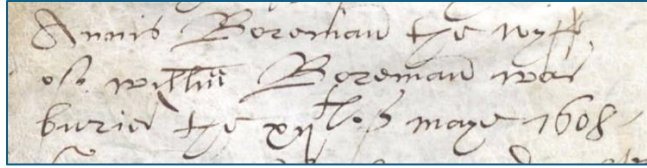 Annis Boreman the wyff
of willm Boreman was
buried the xijth of maye 1608